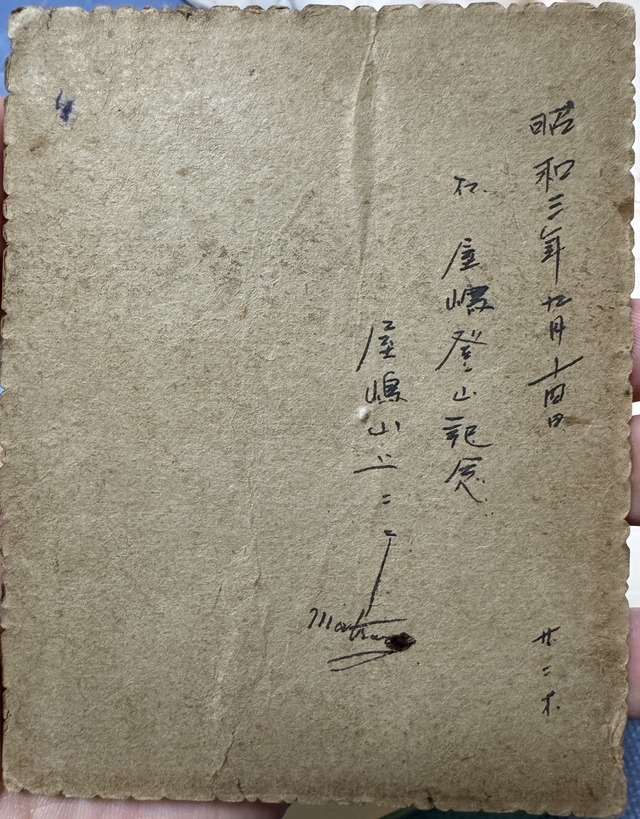 昭和三年九月十四日
廿二才
於 屋嶋登山記念
屋嶋山上ニテ